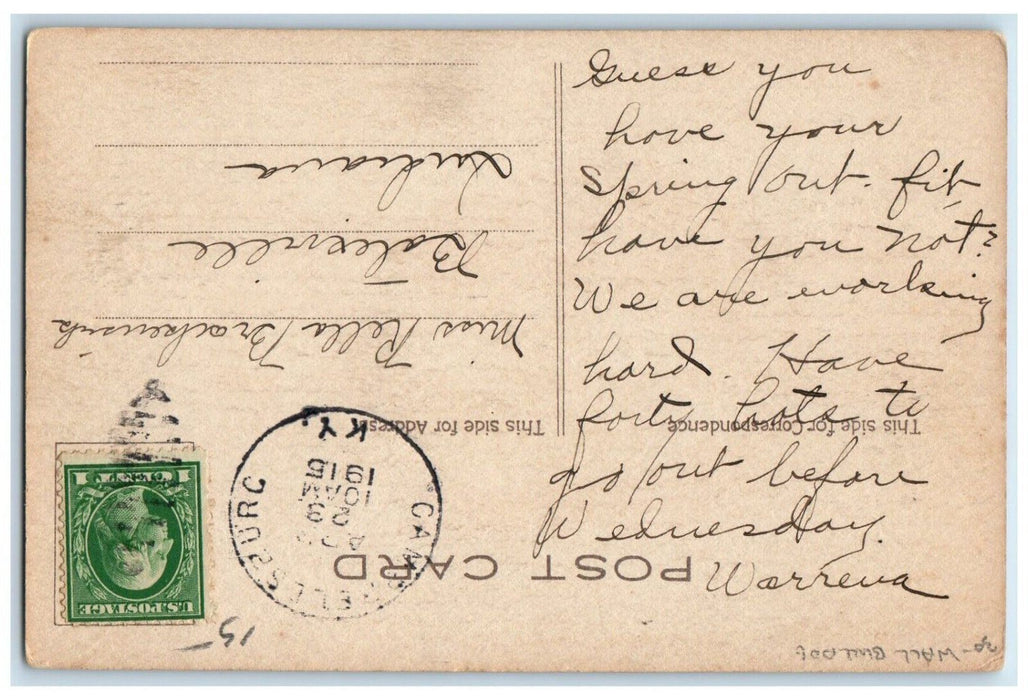 Guess you
have your
Spring out-fit,
have you not?
We are working
hard. Have
forty hats to
go out before
Wednesday.
Warrena
POST CARD
This side for Correspondence
This side for Address
Miss Rella
Batesville
Indiana
CAMPBELLSBURG
KY.
APR
2
10 AM
1915
U.S. POSTAGE
1 CENT 1
15-
WALL